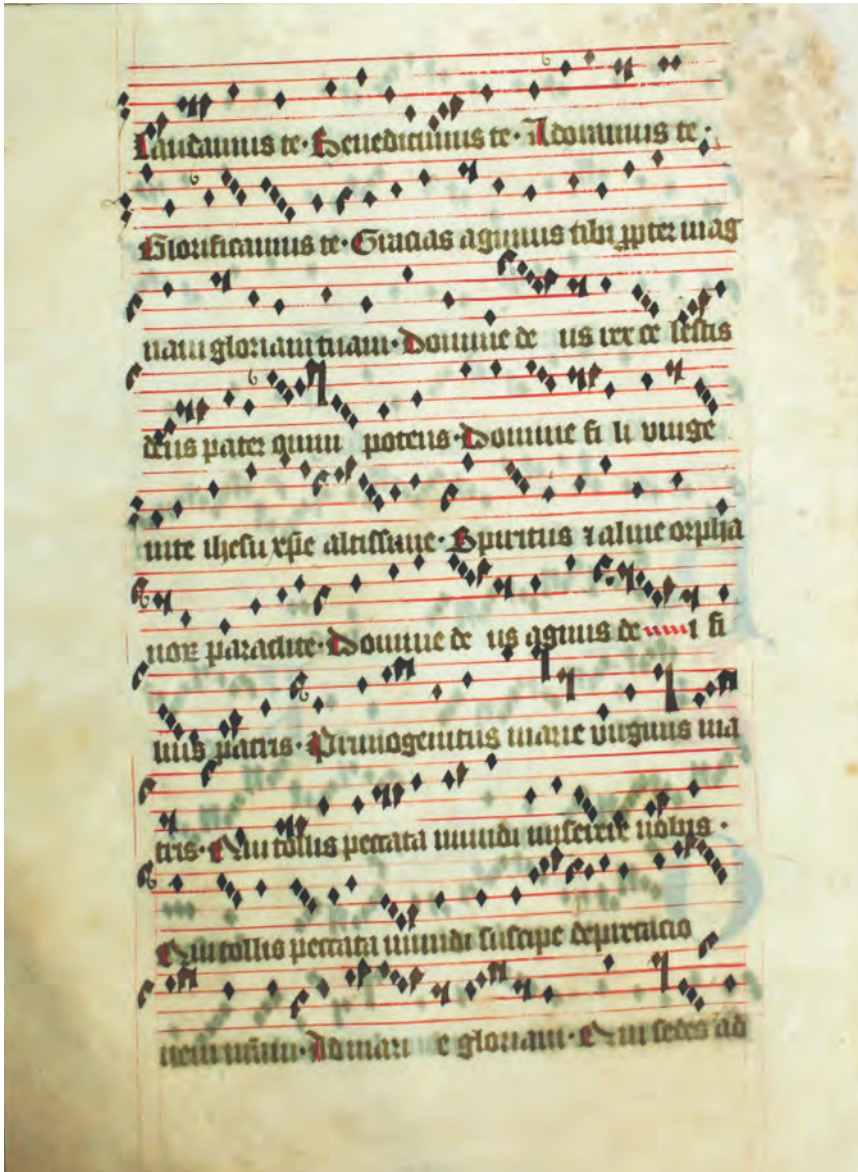 Laudamus te · Benedicimus te · Adoramus te ·
Glorificamus te · Gracias agimus tibi ꝓpter mag
nam gloriam tuam · Domine de us rex ce lestis
deus pater omni potens · Domine fi li vnige
nite ihesu xpe altissime · Spiritus ⁊ alme orpha
nor paraclite · Domine de us agnus de i fi
lius patris · Primogenitus marie virginis ma
tris · Qui tollis peccata mundi miserere nobis ·
Qui tollis peccata mundi suscipe deprecacio
nem nr̄am · Ad mari e gloriam · Qui sedes ad